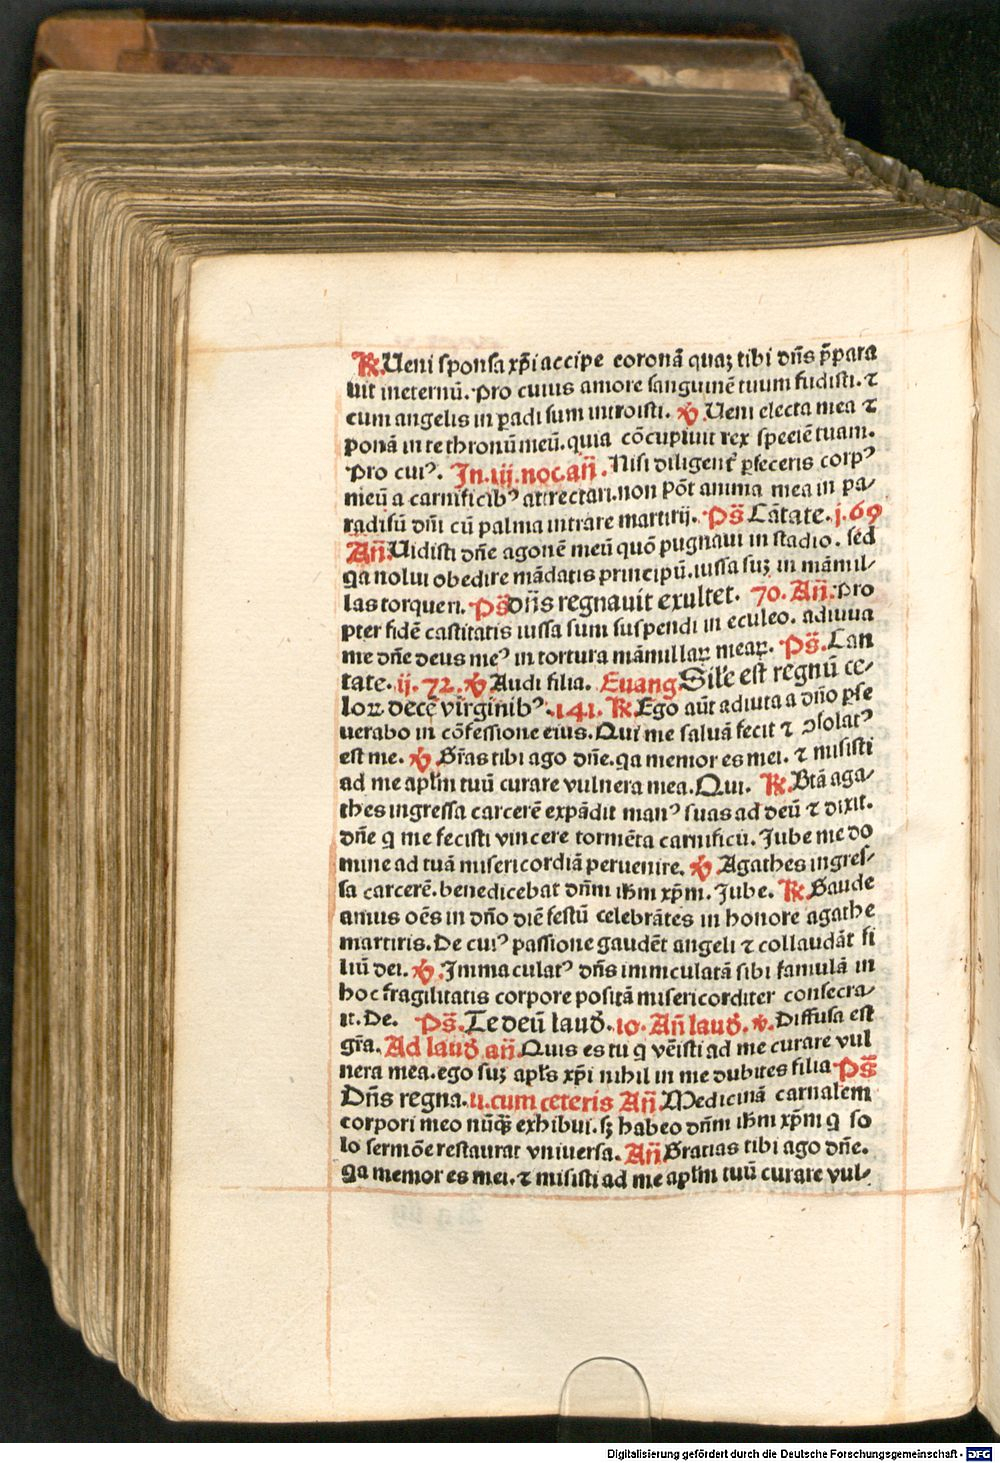 ℟. Ueni sponsa xp̄i accipe coronā quaꝫ tibi dn̄s p̄para
uit ineternū. Pro cuius amore sanguinē tuum fudisti. ⁊
cum angelis in ꝑadi sum introisti. ℣. Ueni electa mea ⁊
ponā in te thronū meū. quia cōcupiuit rex speciē tuam.
Pro cuiꝰ. In .iij. noc. an̄. Nisi diligent̄ ꝑfeceris corpꝰ
meū a carnificibꝰ attrectari. non pōt anima mea in pa⸗
radisū dn̄i cū palma intrare martirij. Ps̄ Cātate. j. 69
An̄. Uidisti dn̄e agonē meū quō pugnaui in stadio. sed
qa nolui obedire mādatis principū. iussa suꝫ in māmil⸗
las torqueri. Ps̄ dn̄s regnauit exultet. 70. An̄. Pro
pter fidē castitatis iussa sum suspendi in eculeo. adiuua
me dn̄e deus meꝰ in tortura māmillaꝝ meaꝝ. Ps̄. Can
tate. ij. 72. ℣. Audi filia. Euang. Sil̄e est regnū ce⸗
loꝝ. decē virginibꝰ. 141. ℟. Ego aūt adiuta a dn̄o ꝑse
uerabo in cōfessione eius. Qui me saluā fecit ⁊ ꝯsolatꝰ
est me. ℣. Gr̄as tibi ago dn̄e. qa memor es mei. ⁊ misisti
ad me apl̄m tuū curare vulnera mea. Qui. ℟. Btā aga⸗
thes ingressa carcerē expādit manꝰ suas ad deū ⁊ dixit.
dn̄e q me fecisti vincere tormēta carnificū. Jube me do
mine ad tuā misericordiā peruenire. ℣. Agathes ingres⸗
sa carcerē. benedicebat dn̄m ih̄m xp̄m. Jube. ℟. Gaude
amus oēs in dn̄o diē festū celebrātes in honore agathe
martiris. De cuiꝰ passione gaudēt angeli ⁊ collaudāt fi
liū dei. ℣. Immaculatꝰ dn̄s immculatā sibi famulā in
hoc fragilitatis corpore positā misericorditer consecra⸗
it. De. Ps̄. Te deū laud̄. 10. An̄ laud̄. ℣. Diffusa est
gr̄a. Ad laud̄ an̄. Quis es tu q vēisti ad me curare vul
nera mea. ego suꝫ apl̄s xp̄i nihil in me dubites filia Ps̄
Dn̄s regna. u. cum ceteris An̄. Medicinā carnalem
corpori meo nūꝗ̄ exhibui. sꝫ habeo dn̄m ih̄m xp̄m q so
lo sermōe restaurat vniuersa. An̄ Gratias tibi ago dn̄e.
qa memor es mei. ⁊ misisti ad me apl̄m tuū curare vul⸗
Digitalisierung gefördert durch die Deutsche Forschungsgemeinschaft - DFG